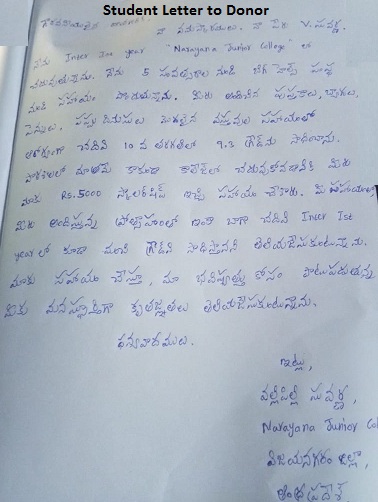 Student Letter to Donor
గౌరవనీయులైన నా నమస్కారములు. నా పేరు V. సువర్ణ.
నేను Inter Ist year "Narayana Junior College" లో
చదువుచున్నాను. నేను 5 సంవత్సరాల నుండి సంస్థ
నుండి సహాయం పొందుచున్నాను. మీరు అందించిన పుస్తకాలు, బ్యాగులు,
పెన్నులు, పప్పు దినుసులు మొదలైన వస్తువుల సహాయంతో
చదివి 10 వ తరగతిలో 9.3 గ్రేడ్‌ను సాధించాను.
కాకుండా కాలేజ్‌లో చదువుకోవడానికి మీరు
మాకు Rs.5000 స్కాలర్‌షిప్ ఇచ్చి సహాయం చేశారు. మీ సహాయంతో
మీరు అందిస్తున్న ప్రోత్సాహంతో ఇంకా బాగా చదివి Inter Ist
year లో కూడా మంచి గ్రేడ్‌ని సాధిస్తానని తెలియజేసుకుంటున్నాను.
మాకు సహాయం చేస్తూ, మా భవిష్యత్తు కోసం పాటుపడుతున్న
మీకు మనస్ఫూర్తిగా కృతజ్ఞతలు తెలియజేసుకుంటున్నాను.
ధన్యవాదములు.
ఇట్లు,
వల్లిపిల్లి సువర్ణ,
Narayana Junior Col
విజయనగరం జిల్లా,
ఆంధ్రప్రదేశ్.